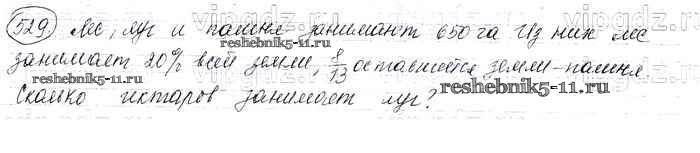 529. Лес, луг и пашня занимают 650 га Из них лес
занимает 20% всей земли, 8/13 оставшейся земли - пашня
Сколько гектаров занимает луг?
reshebnik5-11.ru
reshebnik5-11.ru
reshebnik5-11.ru
vipgdz.ru